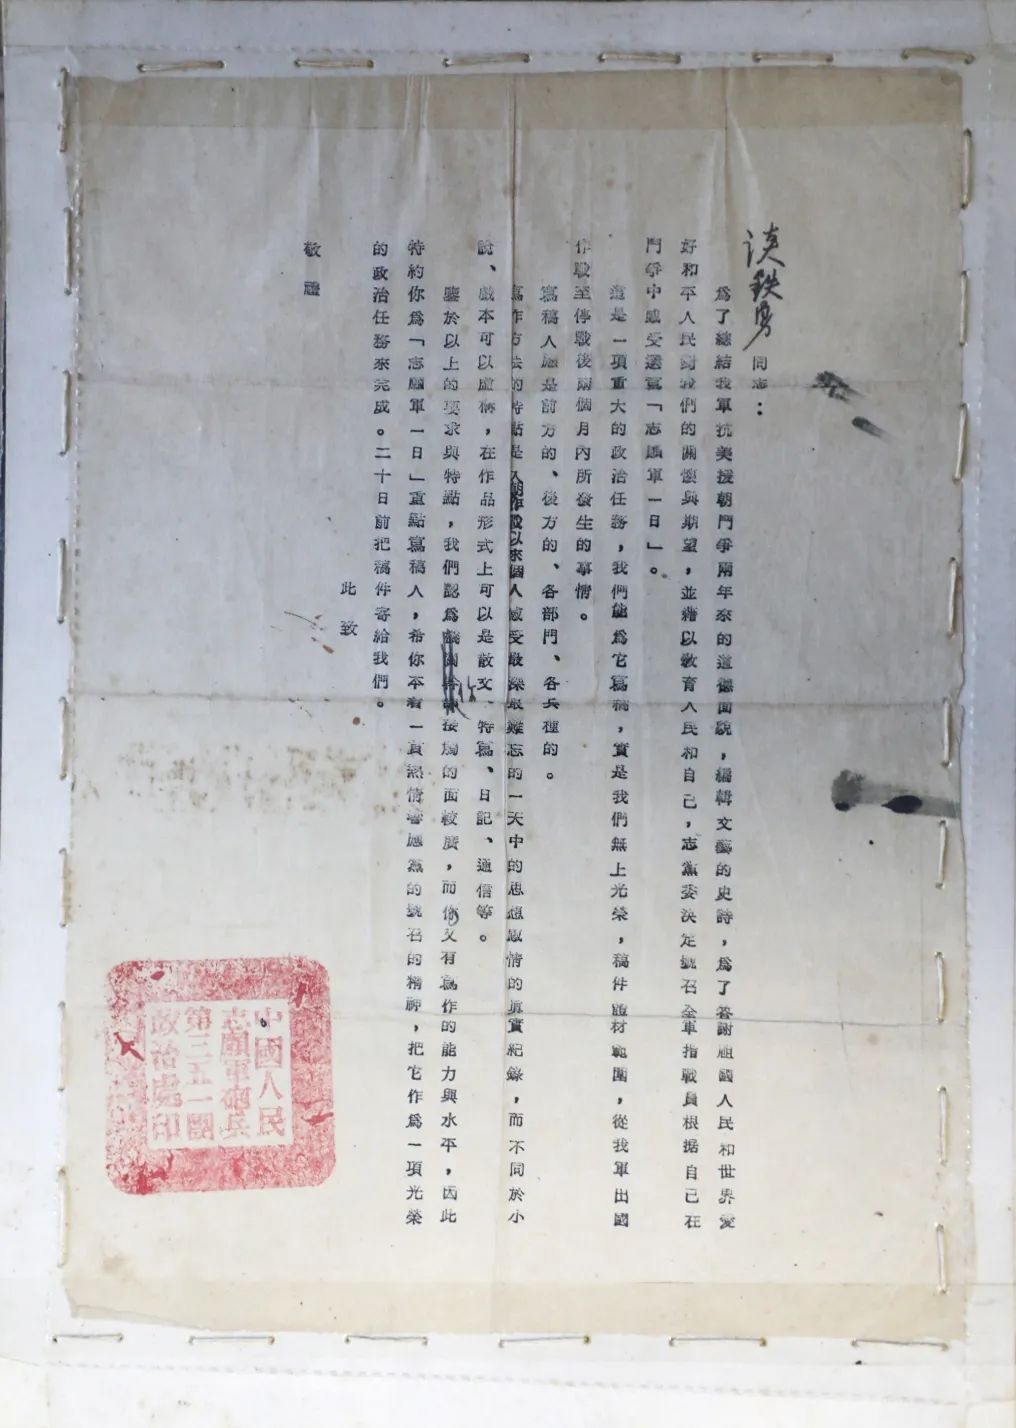 談鉄勇同志:
為了總結我軍抗美援朝鬥爭兩年來的道德面貌,編輯文藝的史詩,為了答謝祖國人民和世界愛
好和平人民對我們的關懷與期望,並藉以教育人民和自己,志黨委決定號召全軍指戰員根据自己在
鬥爭中感受選寫「志願軍一日」。
這是一項重大的政治任務,我們能為它寫稿,實是我們無上光榮,稿件題材範圍,從我軍出國
作戰至停戰後兩個月內所發生的事情。
寫稿人應是前方的、後方的、各部門、各兵種的。
寫作方法的特點是入朝作戰以來個人感受最深最難忘的一天中的思想感情的真實紀錄,而不同於小
說、戲本可以虛構,在作品形式上可以是散文、特寫、日記、通信等。
鑒於以上的要求與特點,我們認為你接觸的面較廣,而你又有寫作的能力與水平,因此
特約你為「志願軍一日」重點寫稿人,希你本着一貫熱情響應黨的號召的精神,把它作為一項光榮
的政治任務來完成。二十日前把稿件寄給我們。
此致
敬禮
中國人民
志願軍砲兵
第三五一團
政治處印